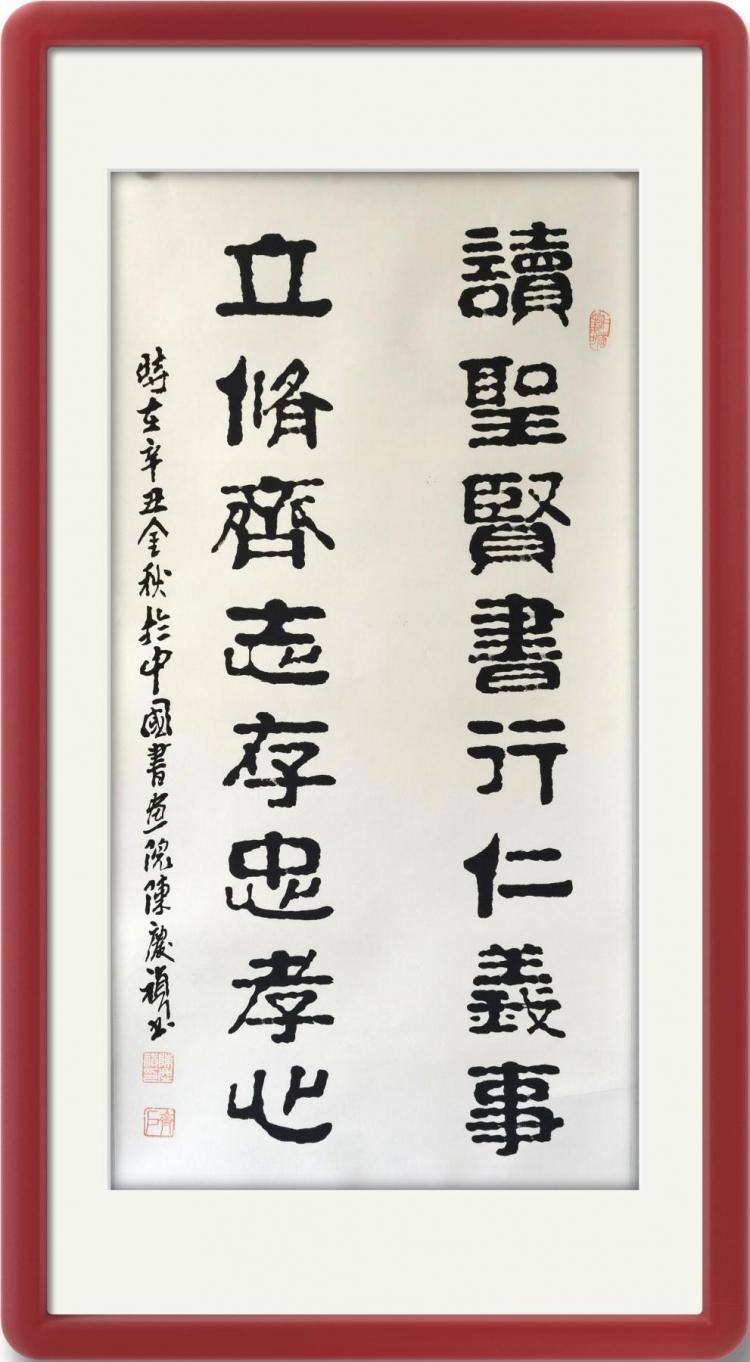 讀聖賢書行仁義事
立脩齊志存忠孝心
時在辛丑金秋於中國書畫院陳慶禎书